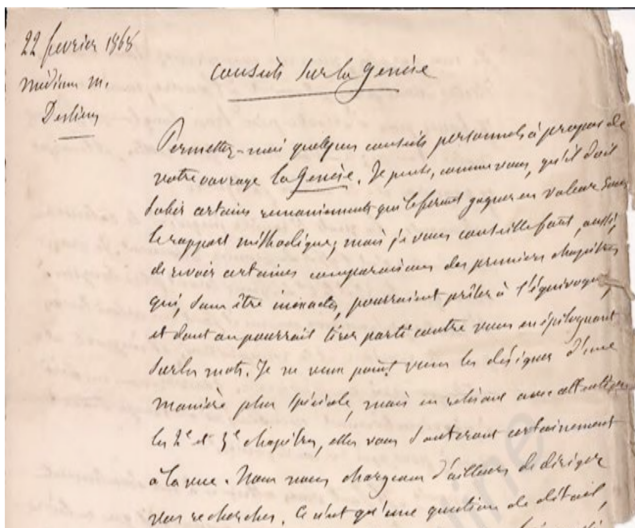 22 février 1868
médium M.
Desliens
Conseils sur la Genèse
Permettez-moi quelques conseils personnels à propos de
votre ouvrage la Genèse. Je pense, comme vous, qu'il doit
subir certains remaniements qui le feront gagner en valeur sous
le rapport méthodique; mais je vous conseille fort, aussi,
de revoir certaines comparaisons des premiers chapitres
qui, sans être inexactes, pourraient prêter à l'équivoque,
et dont on pourrait tirer parti contre vous en épiloguant
sur les mots. Je ne veux point vous les désigner d'une
manière plus spéciale, mais en relisant avec attention
les 2e et 3e chapitres, elles vous sauteront certainement
à la vue. Nous nous chargeons d'ailleurs de diriger
vos recherches. Ce n'est qu'une question de détail,